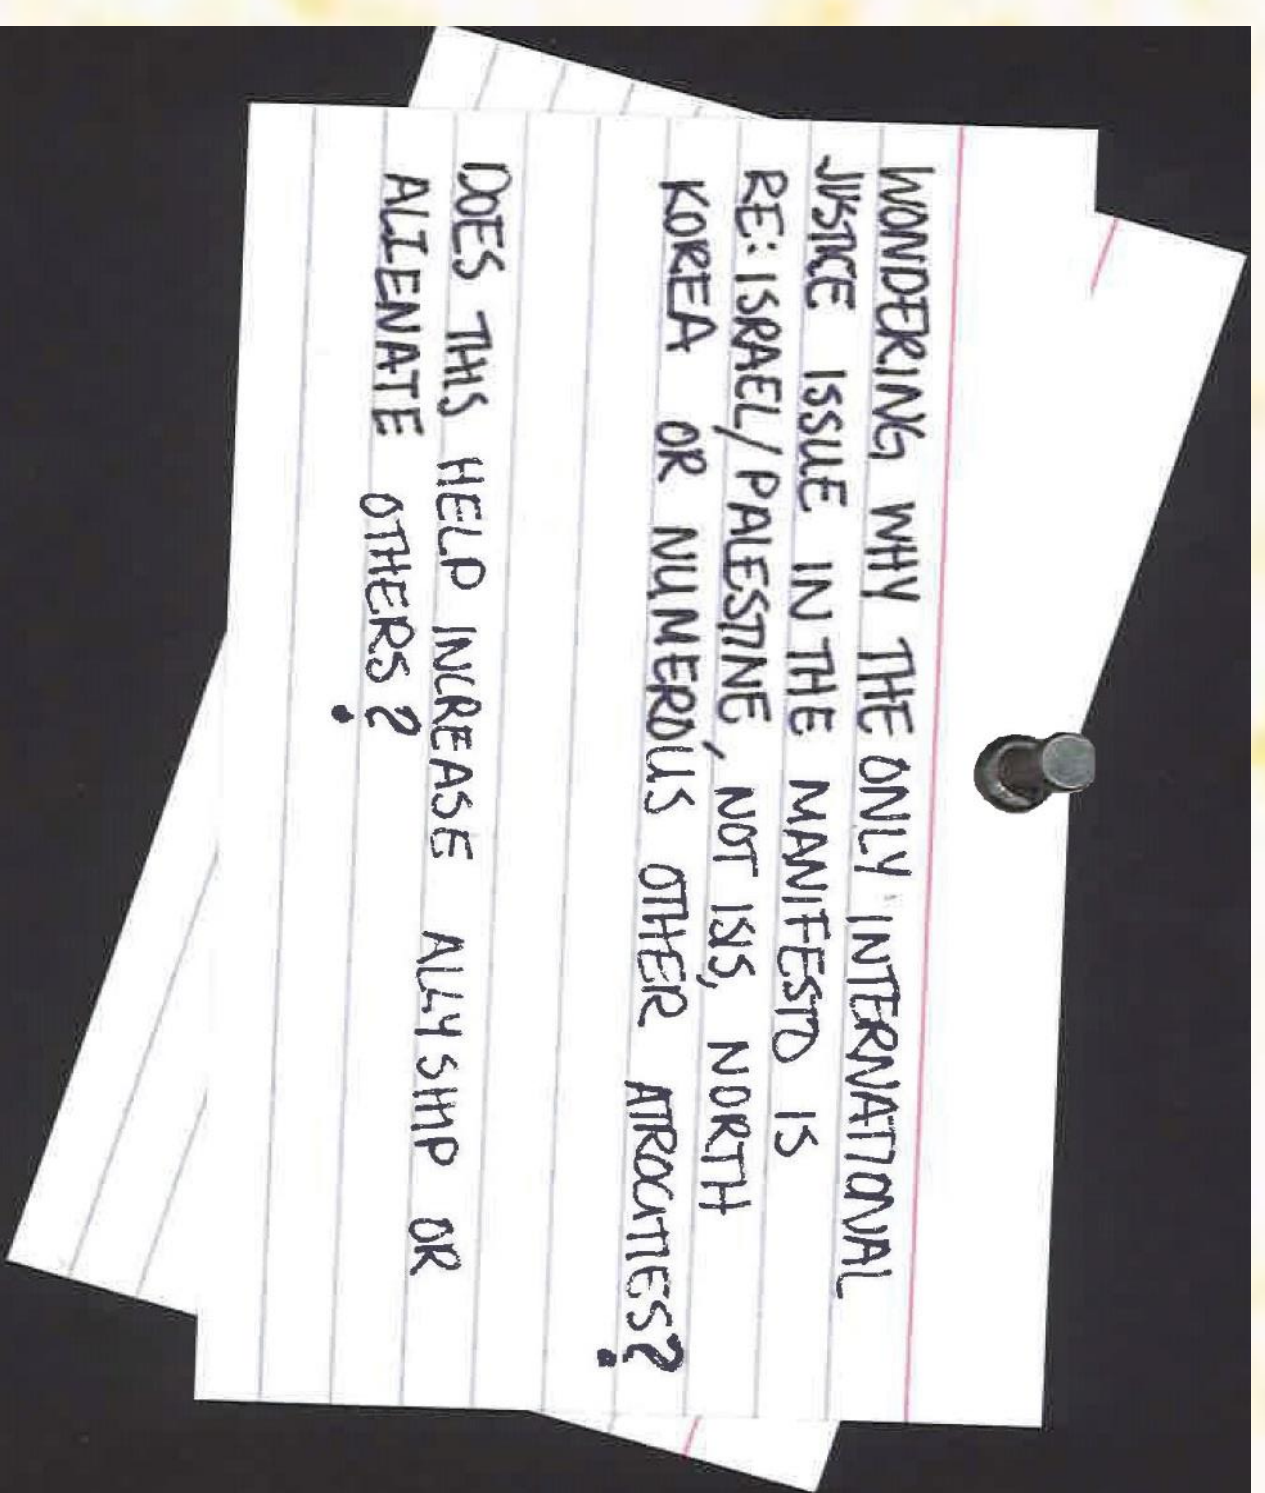 WONDERING WHY THE ONLY INTERNATIONAL
JUSTICE ISSUE IN THE MANIFESTO IS
RE: ISRAEL/PALESTINE, NOT ISIS, NORTH
KOREA OR NUMEROUS OTHER ATROCITIES?
DOES THIS HELP INCREASE ALLYSHIP OR
ALIENATE OTHERS?